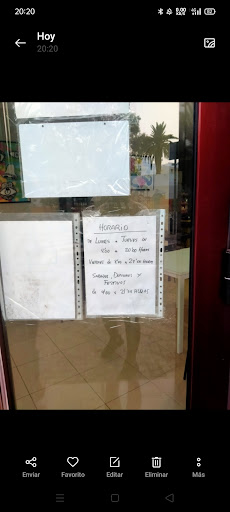 20:20
Hoy
20:20
HORARIO
DE LUNES A JUEVES DE
A 20'00 HORAS
VIERNES DE A HORAS
SABADOS, DOMINGOS Y
FESTIVOS
DE A HORAS
Enviar
Favorito
Editar
Eliminar
Más